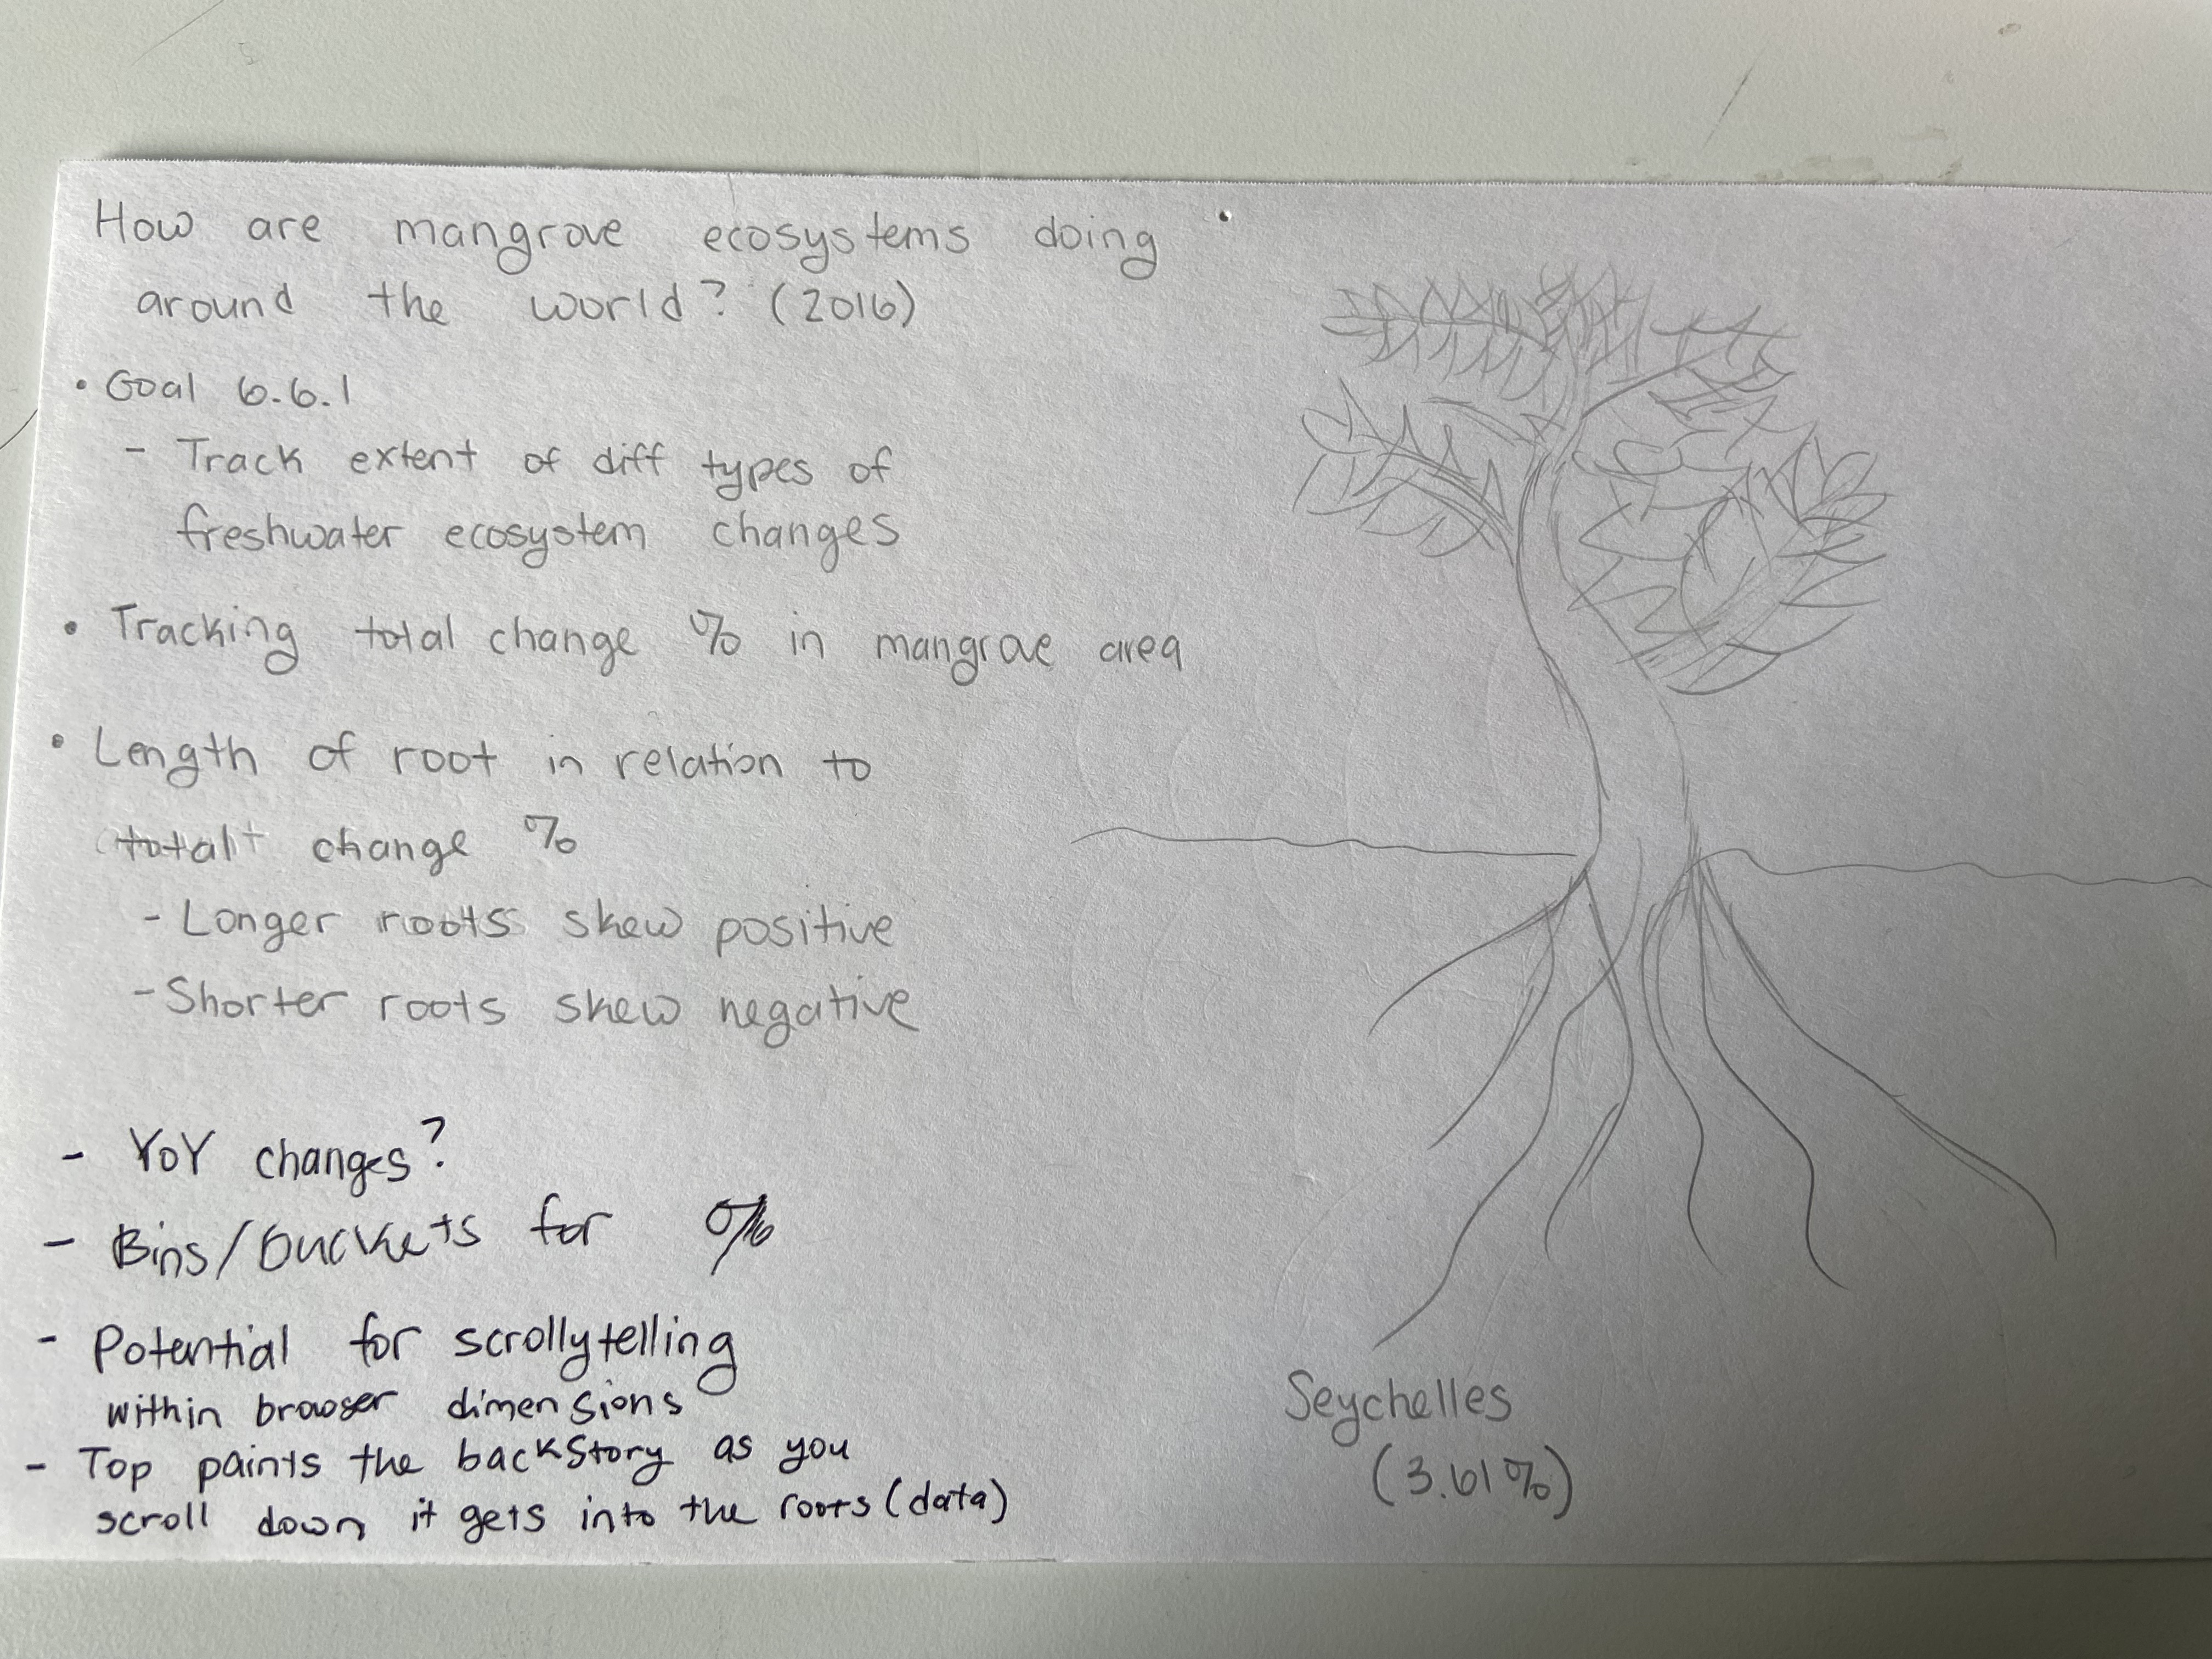 How are mangrove ecosystems doing
around the world? (2016)
• Goal 6.6.1
- Track extent of diff types of
freshwater ecosystem changes
• Tracking total change % in mangrove area
• Length of root in relation to
total change %
- Longer roots skew positive
- Shorter roots skew negative
- YoY changes?
- Bins/buckets for %
- Potential for scrollytelling
within browser dimensions
- Top paints the backstory as you
scroll down it gets into the roots (data)
Seychelles
(3.61%)